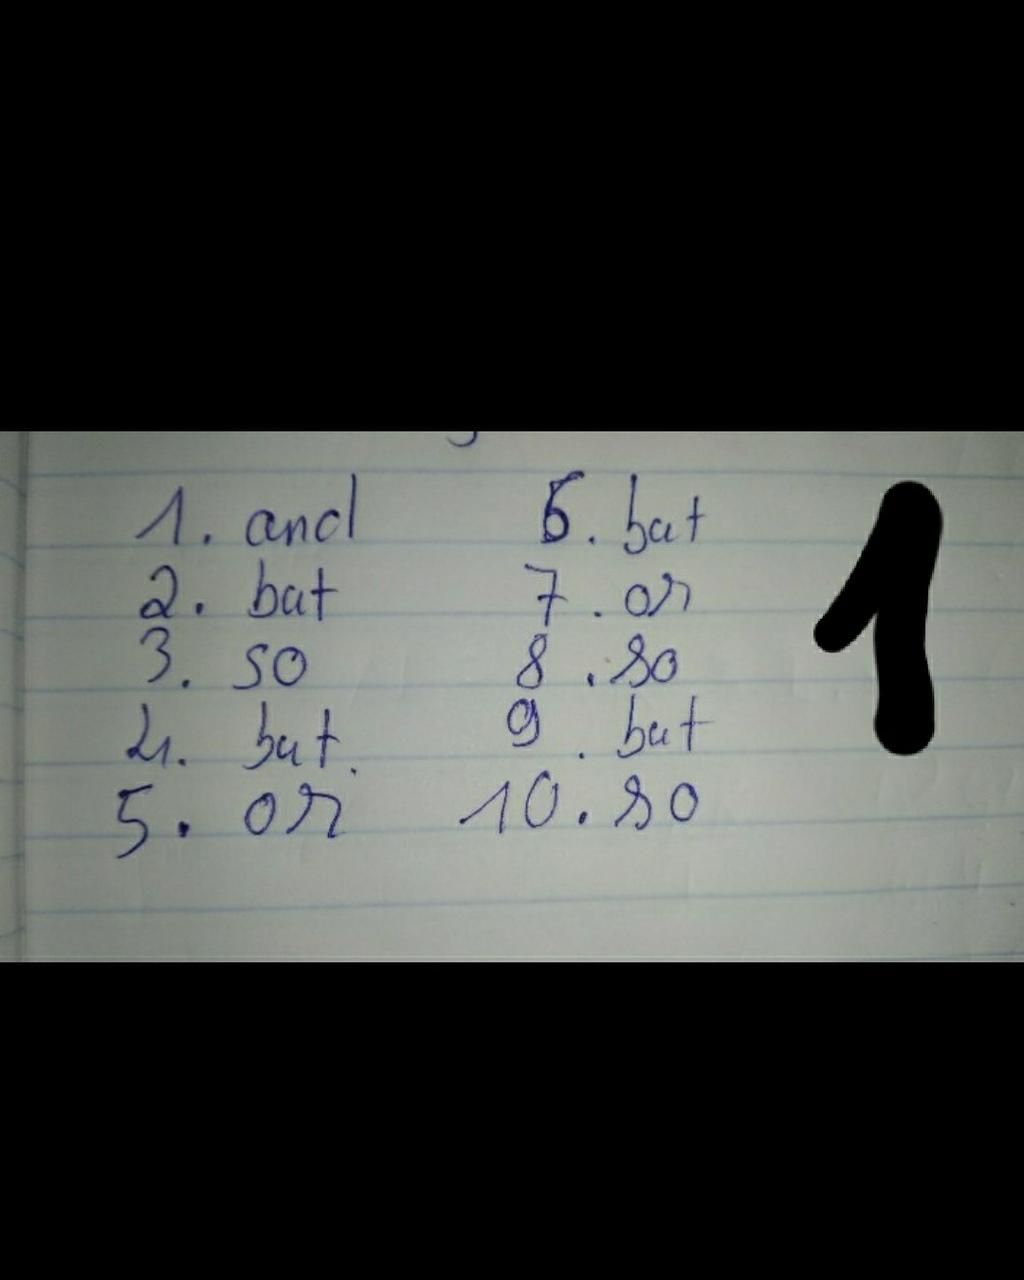 1. and
2. bat
3. so
4. but.
5. or
6. but
7. or
8. so
9. but
10. so
1